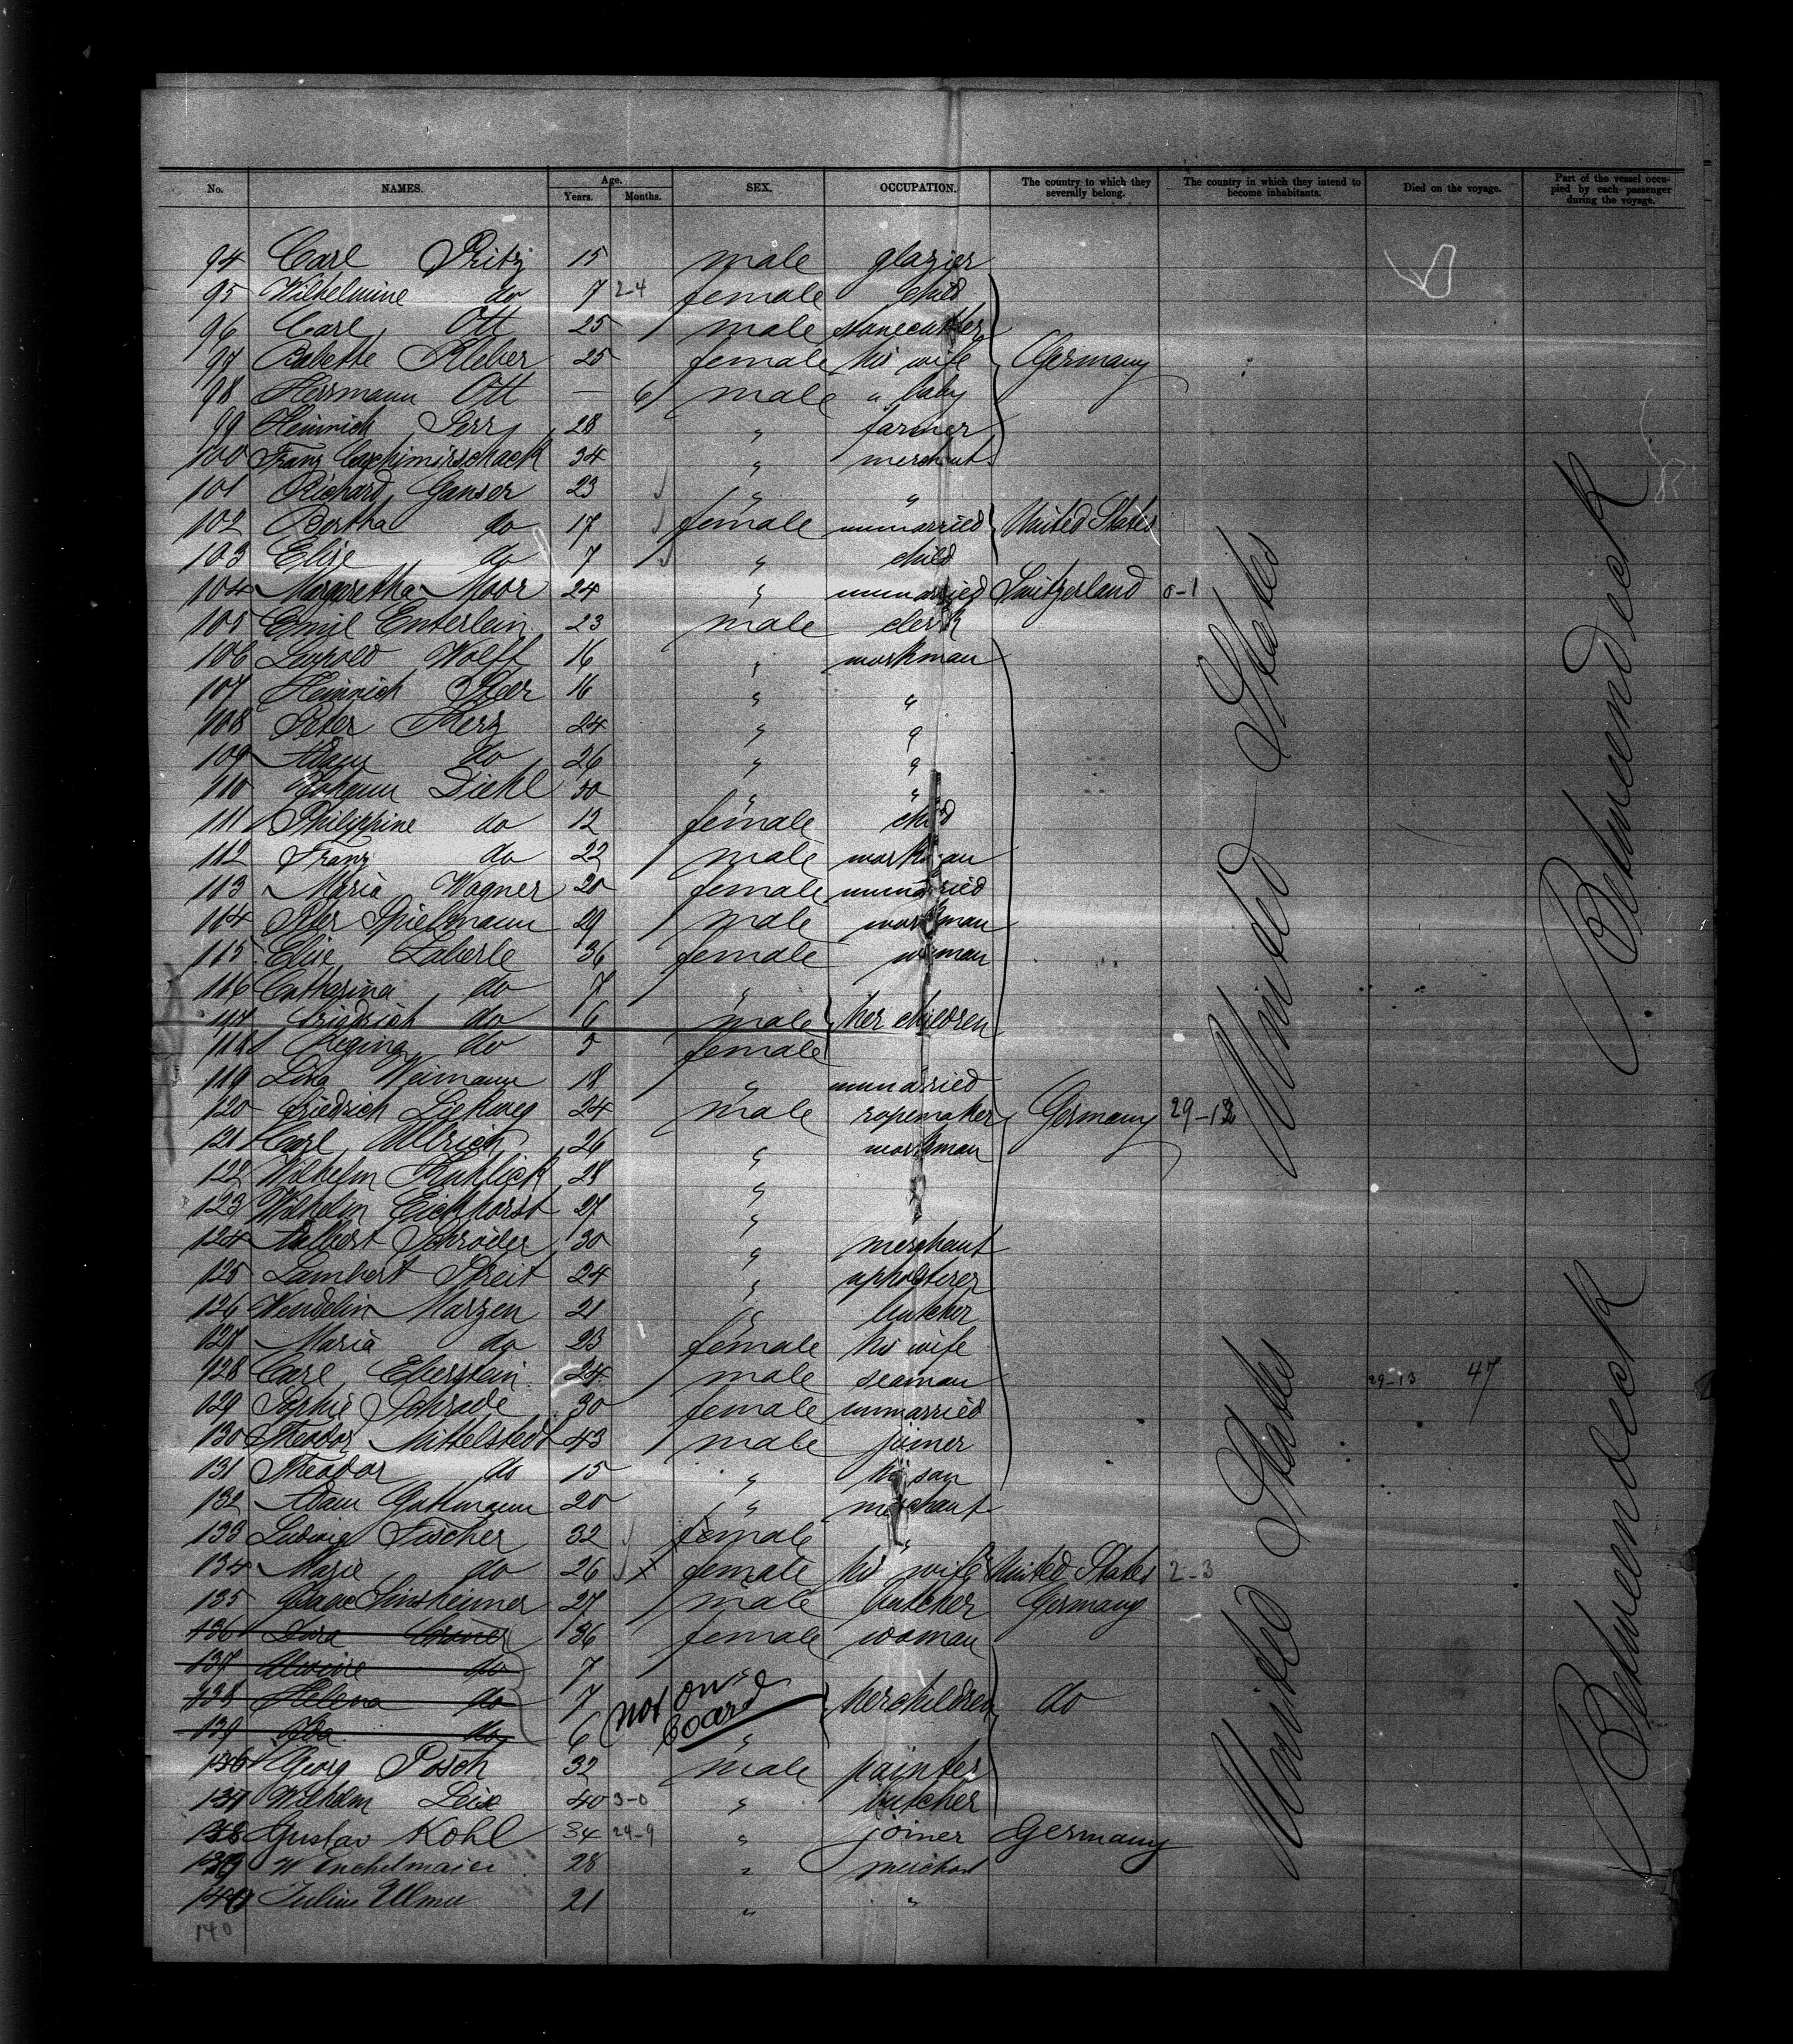 No. NAMES. Age. Years. Months. SEX. OCCUPATION. The country to which they severally belong. The country in which they intend to become inhabitants. Died on the voyage. Part of the vessel occupied by each passenger during the voyage.
94 Carl 15 male glazier
95 Wilhelmine do 7 24 female child
96 Carl Ott 25 male stonecutter
97 Babette Kleber 25 female his wife Germany
98 Herrmann Ott — 6 male " baby
99 Heinrich 28 " farmer
100 Franz 34 " merchant
101 Richard Ganser 23 " "
102 Bertha do 17 female unmarried United States
103 Elise do 7 " child
104 Margaretha Moor 24 " unmarried Switzerland 0-1
105 Emil Enterlein 23 male clerk
106 Leopold Wolff 16 " workman
107 Heinrich 16 " "
108 Peter 24 " "
109 Adam do 26 " "
110 Johann Diehl 30 " "
111 Philippine do 12 female child
112 Franz do 22 male workman
113 Maria Wagner 20 female unmarried
114 Peter Spielmann 29 male workman
115 Elise Laberle 36 female woman
116 Catharina do 7 "
117 Friedrich do 6 male her children
118 Regina do 5 female
119 Lina Weimann 18 " unmarried
120 Friedrich 24 male ropemaker Germany 29-
121 Carl Ullrich 26 " workman
122 Wilhelm 28 " "
123 Wilhelm Eickhorst 27 " "
124 Albert Schröder 30 " merchant
125 Lambert Streit 24 " upholsterer
126 Wendelin Marzen 21 " butcher
127 Maria do 23 female his wife
128 Carl Eberstein 24 male seaman 29-13 47
129 Sophie Schrade 30 female unmarried
130 Theodor Mittelstedt 43 male joiner
131 Theodor do 15 " his son
132 Adam Guthmann 20 " merchant
133 Ludwig Fischer 32 female "
134 Marie do 26 x female his wife United States 2-3
135 Isaac Sinsheimer 27 male butcher Germany
136 36 female woman
137 do 7 "
138 Helena do 7 not on board her children do
139 do 6 "
136 Georg Posch 32 male painter
137 Wilhelm Leix 40 3-0 " butcher
138 Gustav Kohl 34 24-9 " joiner Germany
139 28 "
Julius Ulmer 21 " "
140
United States
United States
Betweendeck
Betweendeck